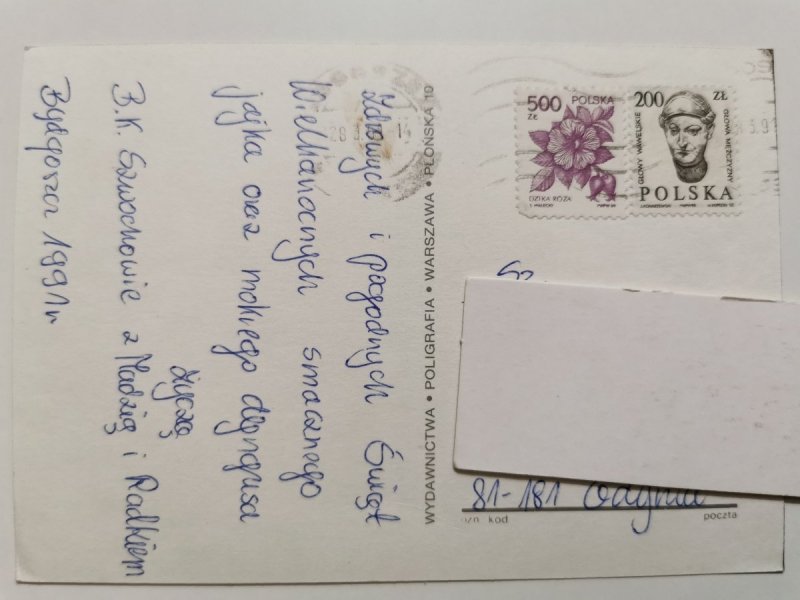 Zdrowych i pogodnych Świąt
Wielkanocnych smacznego
jajka oraz mokrego dyngusa
życzą
B.K. Szwochowie z Madzią i Radkiem
Bydgoszcz 1991r
WYDAWNICTWA • POLIGRAFIA • WARSZAWA • PŁOŃSKA 10
500 ZŁ POLSKA
DZIKA RÓŻA
200 ZŁ
GŁOWY WAWELSKIE
GŁOWA MĘŻCZYZNY
POLSKA
81-181 Gdynia
ozn. kod poczta